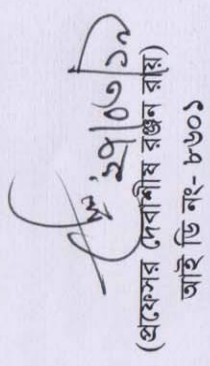 ২৭/০৩/১৯
(প্রফেসর দেবাশীষ রঞ্জন রায়)
আই ডি নং- ৮৬০১